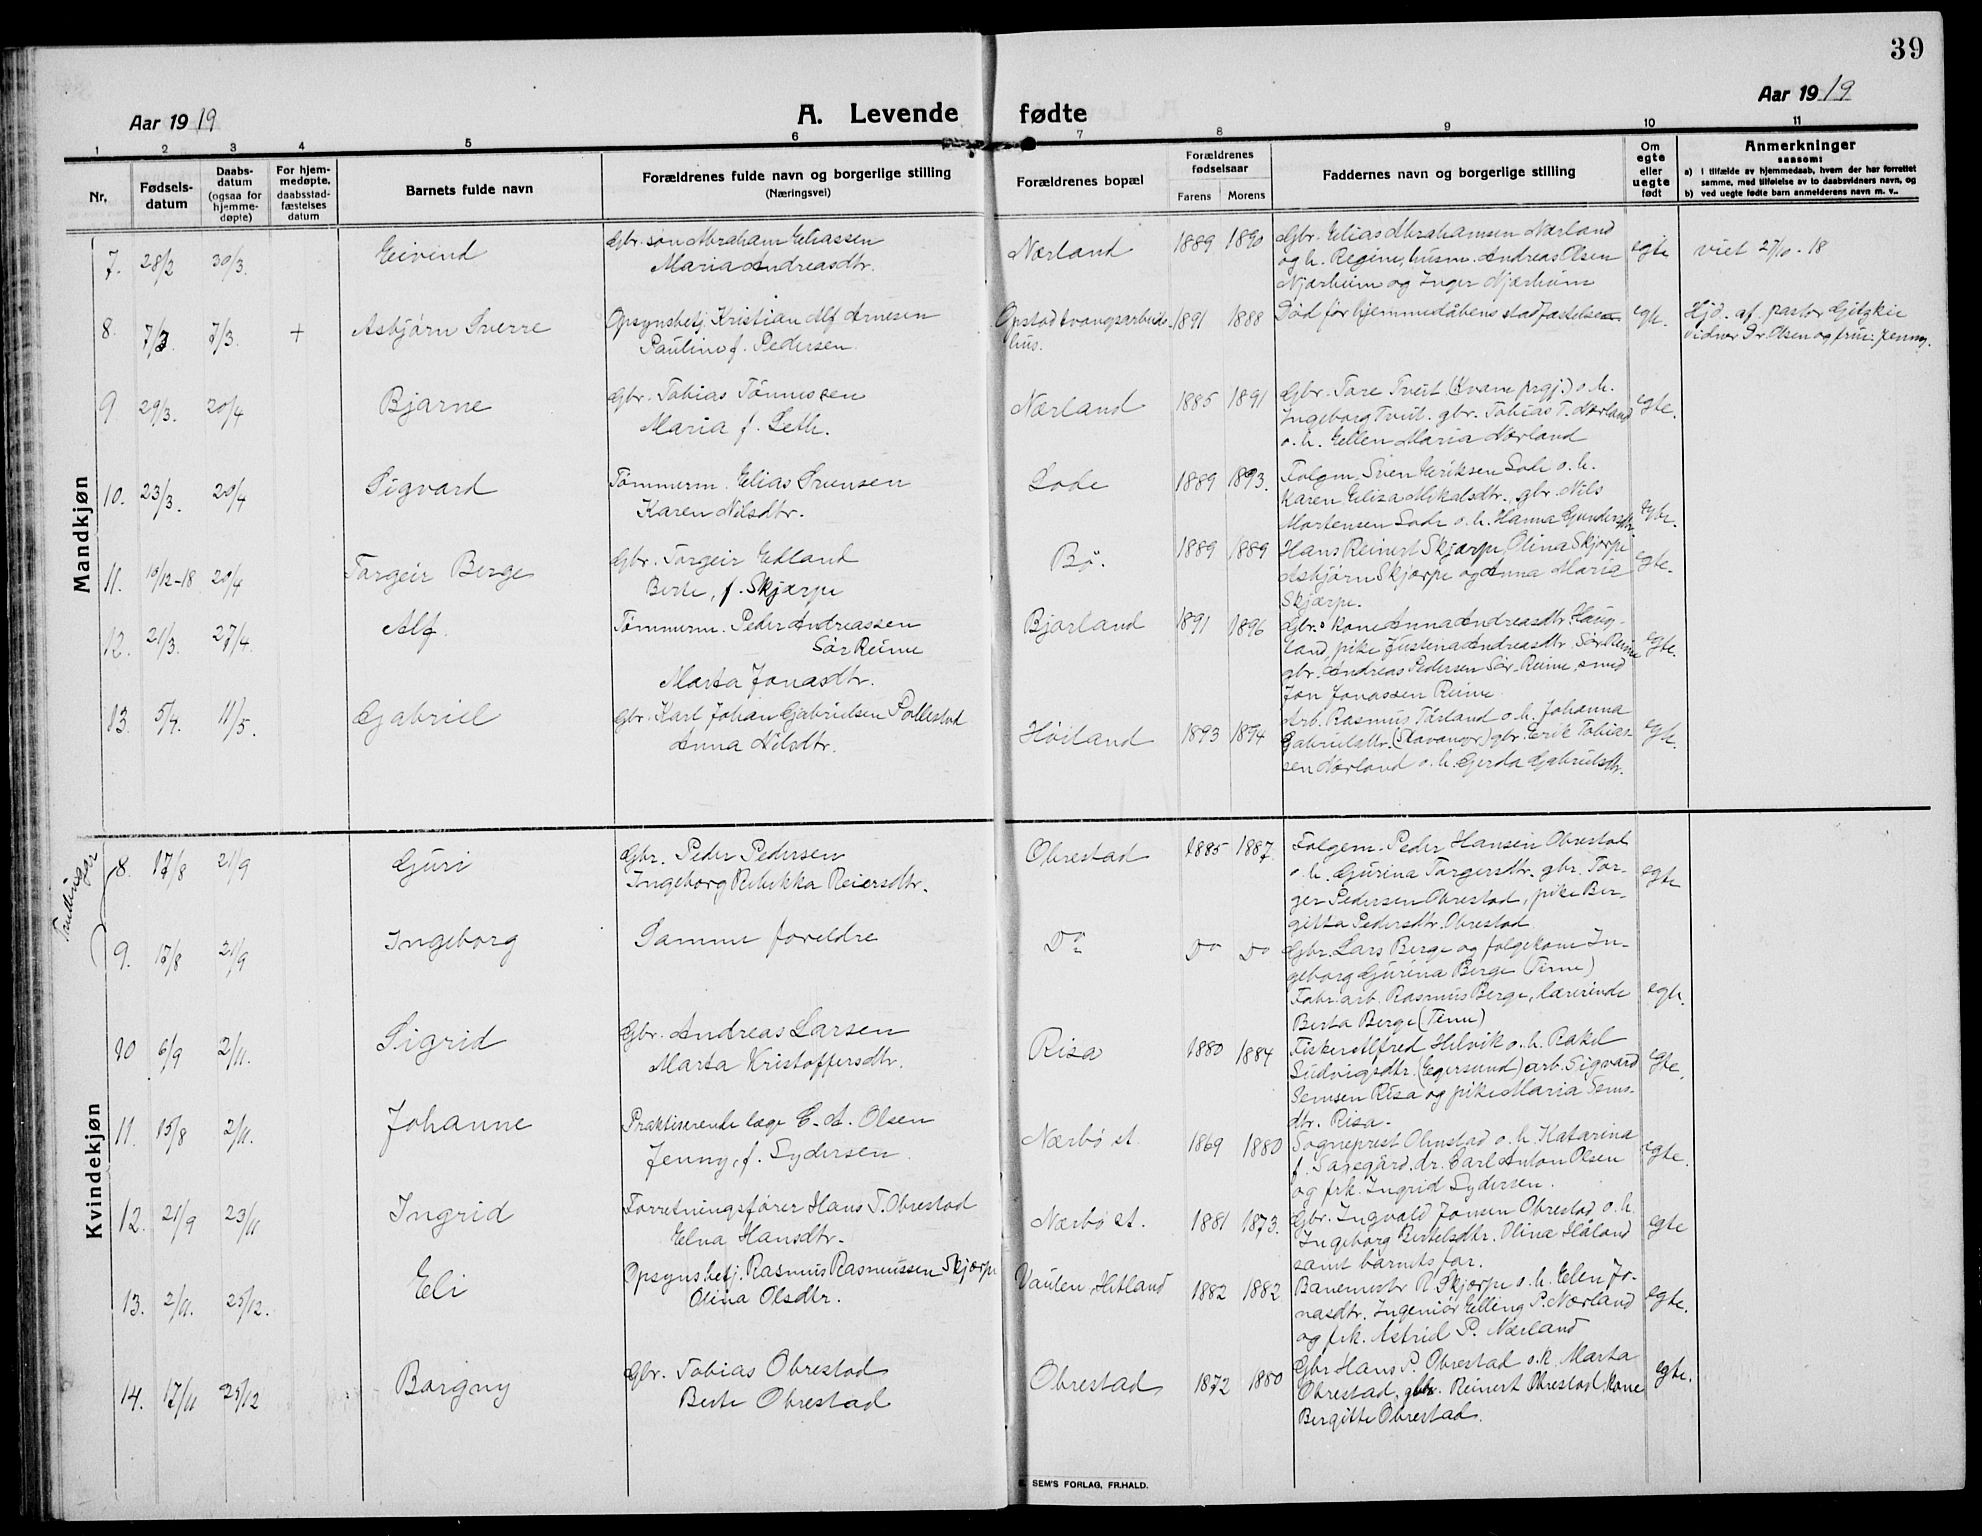 39
Aar 1919
A. Levende fødte
Aar 1919
1 2 3 4 5 6 7 8 9 10 11
Nr.
Fødsels-
datum
Daabs-
datum
(ogsaa for
hjemme-
døpte)
For hjem-
medøpte,
daabsstad-
fæstelses
datum
Barnets fulde navn
Forældrenes fulde navn og borgerlige stilling
(Næringsvei)
Forældrenes bopæl
Forældrenes
fødselsaar
Farens Morens
Faddernes navn og borgerlige stilling
Om
egte
eller
uegte
født
Anmerkninger
saasom:
a) i tilfælde av hjemmedaab, hvem der har forrettet
samme, med tilføielse av to daabsvidners navn, og
b) ved uegte fødte barn anmelderens navn m. v..
Mandkjøn
7. 28/2 30/3. Eivind
Gbr. søn Abraham Eliassen
Maria Andreasdtr.
Nærland 1889 1890
Gbr. Elias Abrahamsen Nærland
og h. Regine, husm. Andreas Olsen
Njærheim og Inger Njærheim
egte viet 27/10-18
8. 7/3. 7/3. + Asbjørn Sverre
Opsynsbetj. Kristian Alf Arnesen
Pauline f. Pedersen.
Opstad tvangsarbeids-
hus.
1891 1888
Død før hjemmedåbens stadfæstelse
egte.
Hjd. af pastor Gitzkie
vidner Dr. Olsen og frue Jenny.
9 29/3. 20/4 Bjarne
Gbr. Tobias Tønnessen
Maria f. Leth.
Nærland 1885 1891
Gbr. Tore Tveit (Kvame prgj.) o. h.
Ingeborg Tveit. gbr. Tobias T. Nærland
o. h. Ellen Maria Nærland
egte.
10. 23/3. 20/4 Sigvard
Tømmerm. Elias Svensen
Karen Nilsdtr.
Lode 1889 1893.
Folgem. Sven Eeriksen Lode o. h.
Karen Eliza Mikalsdtr., gbr. Nils
Mortensen Lode o. h. Hanna Gundersdtr.
egte.
11. 10/12-18 20/4 Torgeir Berge
Gbr. Torgeir Edland
Berte, f. Skjærpe
Bø. 1889 1889
Hans Reinert Skjærpe, Olina Skjærpe
Asbjørn Skjærpe og Anna Maria
Skjærpe.
egte.
12. 21/3. 27/4. Alf.
Tømmerm. Peder Andreassen
Sør Reime
Marta Jonasdtr.
Bjorland 1891 1896
Gbr. kone Anna Andreasdtr. Haug-
land, pike Justina Andreasdtr Sør Reime
gbr. Andreas Pedersen Sør-Reime, smed
Jon Jonassen Reime.
egte.
13. 5/4. 11/5. Gabriel
Gbr. Karl Johan Gabrielsen Pollestad
Anna Nilsdtr.
Høiland 1893 1894
Arb. Rasmus Tårland o. h. Johanna
Gabrielsdtr. (Stavanger) gbr. Erik Tobias-
sen Nærland o. h. Gerda Gabrielsdtr.
egte.
Kvindekjøn
Tvillinger
8. 17/8 21/9 Guri
Gbr. Peder Pedersen
Ingeborg Rebekka Reiersdtr.
Obrestad 1885 1887.
Folgem. Peder Hansen Obrestad
o. h. Gurina Torgersdtr. gbr. Tor-
ger Pedersen Obrestad, pike Ber-
gitta Pedersdtr. Obrestad
egte
9. 17/8 21/9 Ingeborg
Samme foreldre
Do Do Do
Gbr. Lars Berge og folgekone In-
geborg Gurina Berge (Time)
Fabr. arb. Rasmus Berge, lærerinde
Berta Berge (Time)
egte.
10 6/9 2/11. Sigrid
Gbr. Andreas Larsen
Marta Kristoffersdtr.
Risa 1880 1884
Fisker Alfred Helvik o. h. Rakel
Ludvigsdtr. (Egersund) arb. Sigvard
Semsen Risa og pike Maria Sems-
dtr. Risa.
egte.
11. 15/8 2/11. Johanne
Praktiserende læge C. A. Olsen
Jenny, f. Lydersen.
Nærbø st. 1869 1880
Sogneprest Olmstad o. h. Katarina
f. Saxegård. dr. Carl Anton Olsen
og frk. Ingrid Lydersen.
egte.
12. 21/9 23/11 Ingrid
Forretningsfører Hans T. Obrestad
Elna Hansdtr.
Nærbø st. 1881 1873.
Gbr. Ingvald Jonsen Obrestad o. h.
Ingeborg Bertelsdtr. Olina Håland
samt barnets far.
egte
13. 2/11. 25/12. Eli
Opsynsbetj. Rasmus Rasmussen Skjærpe
Olina Olsdtr.
Vaulen, Hetland 1882 1882
Banemestr R Skjærpe o. h. Elen Jo-
nasdtr. Ingeniør Elling P. Nærland
og frk. Astrid P. Nærland
egte.
14. 17/11 25/12 Borgny
Gbr. Tobias Obrestad
Berte Obrestad
Obrestad 1872 1880
Gbr Hans P. Obrestad o. h. Marta
Obrestad, gbr. Reinert Obrestad, kone
Bergitte Obrestad.
egte.
SEM'S FORLAG, FR.HALD.